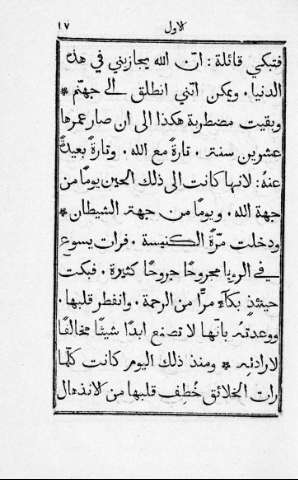 الاول ١٧
فتبكي قائلة : انّ الله يجازيني في هذه
الدنيا . ويمكن انني انطلق الى جهنّم *
وبقيت مضطربة هكذا الى ان صار عمرها
عشرين سنة . تارةً مع الله . وتارةً بعيدةً
عنهُ : لانها كانت الى ذلك الحين يومًا من
جهة الله . ويومًا من جهة الشيطان *
ودخلت مرّةً الكنيسة . فرات يسوع
في الرويا مجروحًا جروحًا كثيرة . فبكت
حينئذٍ بكآءً مرًّا من الرحمة . وانفطر قلبها .
ووعدته بانّها لا تصنع ابدًا شيئًا مخالفًا
لارادته * ومنذ ذلك اليوم كانت كلّما
رات الخلائق خُطِف قلبها من الانذهال